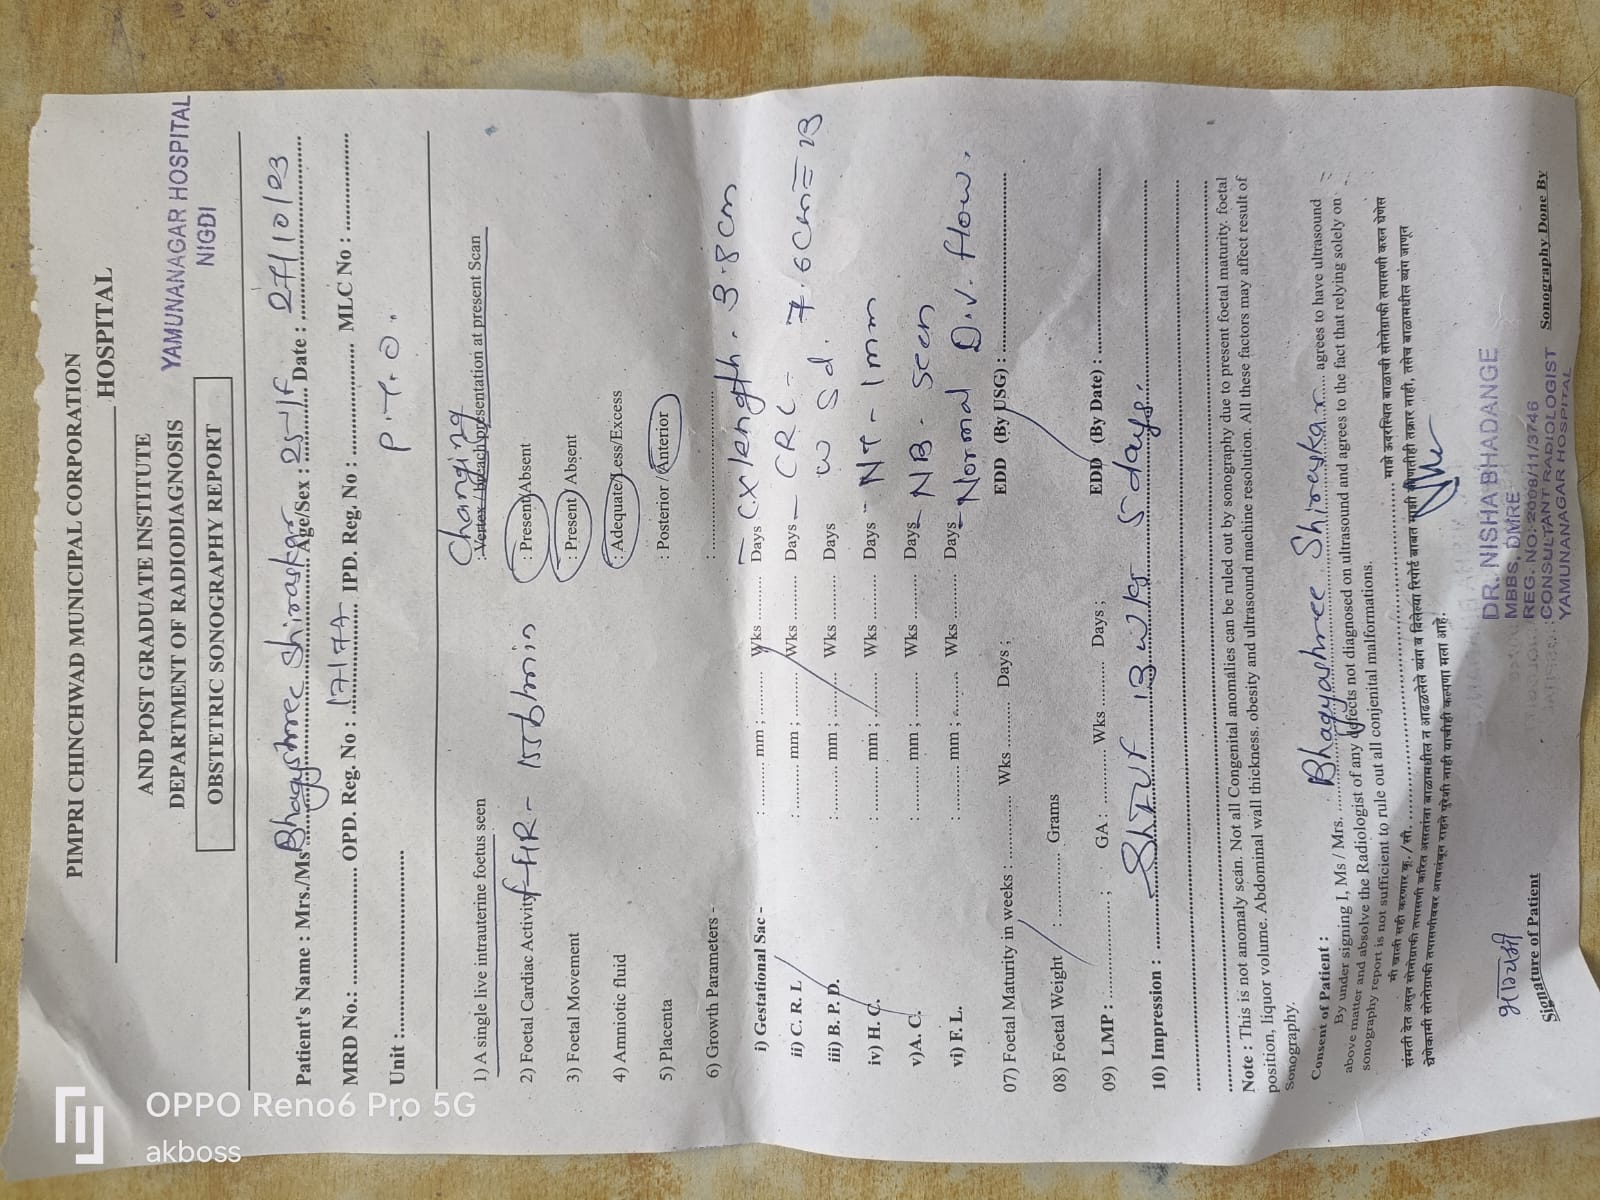 PIMPRI CHINCHWAD MUNICIPAL CORPORATION
HOSPITAL
AND POST GRADUATE INSTITUTE
YAMUNANAGAR HOSPITAL
NIGDI
DEPARTMENT OF RADIODIAGNOSIS
OBSTETRIC SONOGRAPHY REPORT
Patient's Name : Mrs./Ms Bhagyshree Shiraskar Age/Sex : 25/F Date : 27/10/23
MRD No.: OPD. Reg. No : 17177 IPD. Reg. No : MLC No :
Unit : P.T.O.
1) A single live intrauterine foetus seen : Vertex / breach presentation at present Scan
Changing
2) Foetal Cardiac Activity FHR - 155b/min : Present/Absent
3) Foetal Movement : Present / Absent
4) Amniotic fluid : Adequate/Less/Excess
5) Placenta : Posterior / Anterior
6) Growth Parameters - :
i) Gestational Sac - : mm ; Wks Days - CX length. 3.8cm
ii) C. R. L : mm ; Wks Days - CRL - 7.6cm = 13
iii) B. P. D. : mm ; Wks Days w 5d.
iv) H. C. : mm ; Wks Days - NT - 1mm
v)A. C. : mm ; Wks Days - NB - seen
vi) F. L. : mm ; Wks Days - Normal D.V. flow.
07) Foetal Maturity in weeks : Wks Days ; EDD (By USG) :
08) Foetal Weight : Grams
09) LMP : ; GA : Wks Days ; EDD (By Date) :
10) Impression : SLIUF 13 wks 5 days.
Note : This is not anomaly scan. Not all Congenital anomalies can be ruled out by sonography due to present foetal maturity. foetal
position, liquor volume. Abdominal wall thickness. obesity and ultrasound machine resolution. All these factors may affect result of
Sonography.
Consent of Patient :
By under signing I, Ms / Mrs. Bhagyashree Shiraykar agrees to have ultrasound
above matter and absolve the Radiologist of any defects not diagnosed on ultrasound and agrees to the fact that relying solely on
sonography report is not sufficient to rule out all conjenital malformations.
मी खाली सही करणार कु. /सौ. माझे ऊदरस्थित बाळाची सोनोग्राफी तपासणी करुन घेणेस
संमती देत असून सोनोग्राफी तपासणी करित असतांना बाळामधील न आढळलेले व्यंग व दिलेल्या रिपोर्ट बाबत माझी कोणतीही तक्रार नाही, तसेच बाळामधील व्यंग जाणून
घेणेकामी सोनोग्राफी तपासणीवर आवलंबून राहने पुरेशी नाही याचीही कल्पना मला आहे.
भाग्यश्री
Signature of Patient
DR. NISHA BHADANGE
MBBS, DMRE
REG. NO: 2008/11/3746
CONSULTANT RADIOLOGIST
YAMUNANAGAR HOSPITAL
Sonography Done By
OPPO Reno6 Pro 5G
akboss